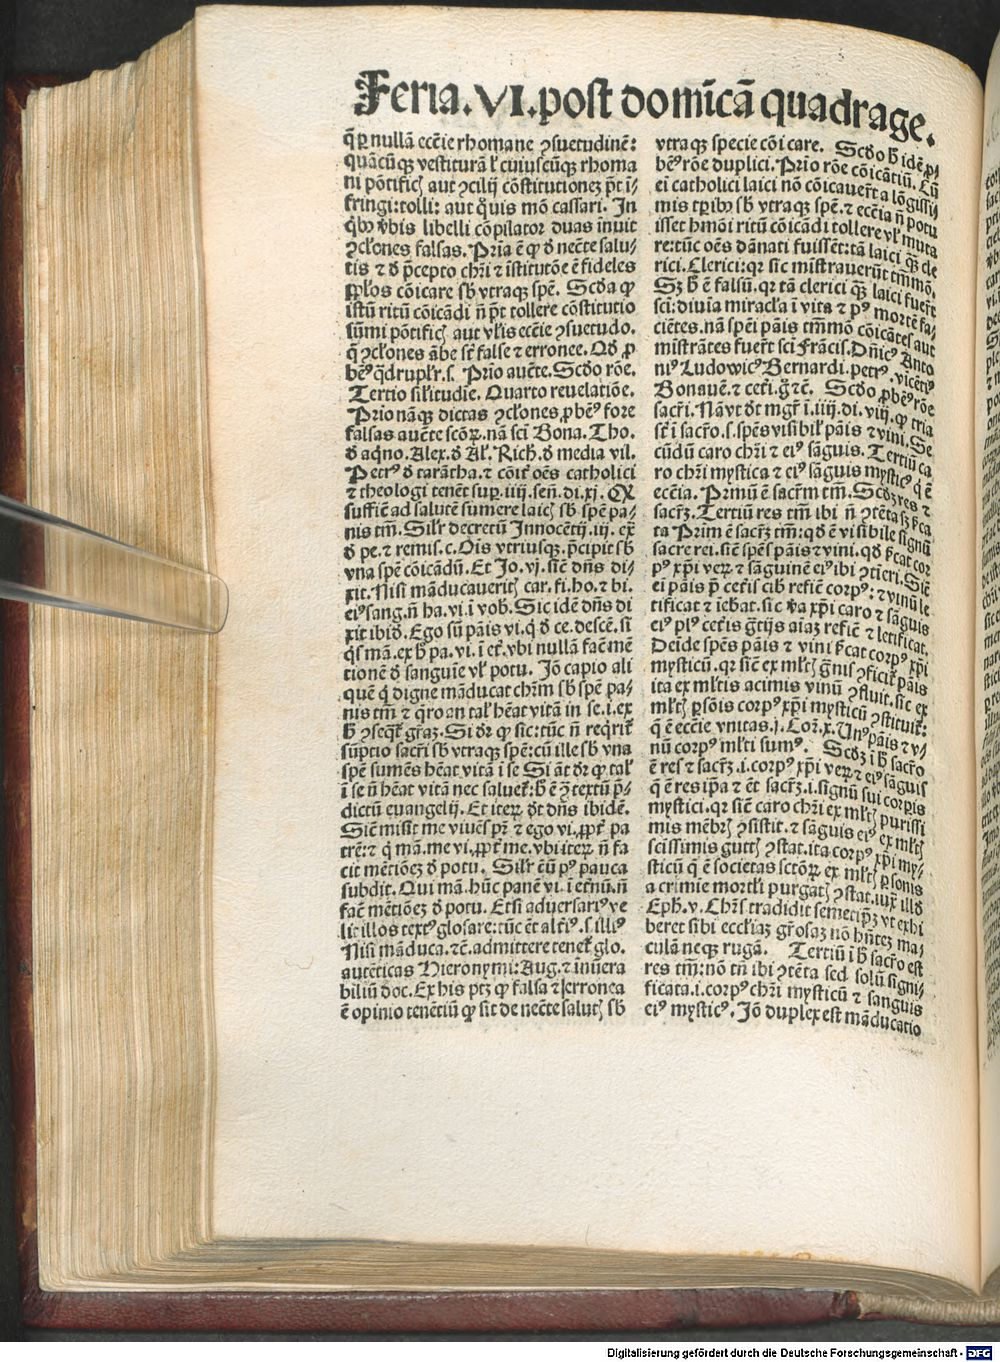 Feria.VI.post domīcā quadrage.
q̄ꝑ nullā ecc̄ie rhomane ꝯsuetudinē:
quācūqꝫ vestiturā ł cuiuscūqꝫ rhoma
ni pōtifich aut ꝯcilij cōstitutionez p̄t ī-
fringi:tolli: aut q̄uis mō cassari. In
libelli cōpilator duas innuit
ꝯcl'ones falsas. Pria ē ꝙ đ nec̄te salu-
tis ⁊ đ p̄cepto chr̄i ⁊ īstitutōe ē fideles
cōicare sb̄ vtraqꝫ spē. Scđa ꝙ
istū ritū cōicādi n̄ p̄t tollere cōstitutio
sūmi pōtifich aut vl̄is ecc̄ie ꝯsuetudo.
q̄ ꝯcl'ones ābe sr̄ false ⁊ erronee. Qđ ꝓ
bēꝰ q̄drupl'r.s. Prio auc̄te. Scđo rōe.
Tertio sil'itudie. Quarto reuelatiōe.
Prio nāqꝫ dictas ꝯcl'ones ꝓbēꝰ fore
falsas auc̄te scōꝝ. nā sci Bona. Tho.
đ aq̄no. Alex. đ Al'. Rich. đ media vil.
Petrꝰ đ tarātha. ⁊ cōit̄ oēs catholici
⁊ theologi tenēt suꝑ .iiij. sen̄. di. xj.
suffic̄ ad salutē sumere laich sb̄ spē pa-
nis tm̄. Sil'r decretū Innocētij. iij. ex̄
đ pe. ⁊ remis. c. Ois vtriusqꝫ. p̄cipit sb̄
vna spē cōicādū. Et Jo. vj. sic̄ dn̄s di-
xit. Nisi māducauerith car. fi. ho. ⁊ bi.
eiꝰ sang. n̄ ha. vi. ī vob. Sic idē dn̄s di
xit ibiđ. Ego sū pāis vi. q̄ đ ce. descē. si
q̄s mā. ex h̄ pa. vi. ī et̄. vbi nullā fac̄ mē
tionē đ sanguie vł potu. Jō capio ali
quē q̄ digne māducat chr̄m sb̄ spē pa-
nis tm̄ ⁊ q̄ro an tal' hēat vitā in se. i. ex
h̄ ꝯseq̄t gr̄az. Si dr̄ ꝙ sic: tūc n̄ req̄rit̄
sūptio sacri sb̄ vtraqꝫ spē: cū ille sb̄ vna
spē sumēs hēat vitā ī se Si āt dr̄ ꝙ tal'
ī se n̄ hēat vitā nec saluet̄: h̄ ē ꝯ textū p̄-
dictū euangelij. Et iteꝝ đt dn̄s ibidē.
Sic̄ misit me viuēs pr̄ ⁊ ego vi. ꝓpt̄ pa
trē: ⁊ q̄ mā. me vi. ꝓpt̄ me. vbi iteꝝ n̄ fa
cit mētiōez đ potu. Sil'r cū pꝰ pauca
subdit. Qui mā. hūc panē vi. ī et̄nū. n̄
fac̄ mētiōez đ potu. Etsi aduersariꝰ ve
lit illos textꝰ glosare: tūc ēt altiꝰ. s. illiꝰ
Nisi māduca. ⁊c̄. admittere tenet̄ glo.
autēticas Hieronymi: Aug. ⁊ īnūera
biliū doc. Ex his ptz ꝙ falsa ⁊ erronea
ē opinio tenētiū ꝙ sit de nec̄te saluth sb̄
vtraqꝫ specie cōicare. Scđo h̄ idē ꝓ-
bēꝰ rōe duplici. Prio rōe cōicātiū. Cū
ei catholici laici nō cōicauer̄t a lōgissi
mis tꝑibꝰ sb̄ vtraqꝫ spē. ⁊ ecc̄ia n̄ potu
isset hmāi ritū cōicādi tollere vł muta
re: tūc oēs dānati fuissēt: tā laici qꝫ cle
rici. Clerici: qꝛ sic mīstrauerūt tm̄mō.
Sz h̄ ē falsū. qꝛ tā clerici qꝫ laici fuer̄t
sci: diuīa miracl'a ī vita ⁊ pꝰ mortē fa-
ciētes. nā spēi pāis tm̄mō cōicātes aut
mīstrātes fuer̄t sci Frācis. Dn̄icꝰ Anto
niꝰ Ludowicꝰ Bernardi. petrꝰ. vicētiꝰ
Bonauē. ⁊ cet̄i. Scđo ꝓbēꝰ rōe
sacr̄i. Nā vt đt mgr̄ ī. iiij. di. viij. ꝙ tria
sr̄ ī sacr̄o. s. spēs visibil' pāis ⁊ vini. Se
cūdū caro chr̄i ⁊ eiꝰ sāguis. Tertiū ca
ro chr̄i mystica ⁊ eiꝰ sāguis mysticꝰ q̄ ē
ecc̄ia. Primū ē sacr̄m tm̄. Scđz res ⁊
sacr̄z. Tertiū res tm̄ ibi n̄ ꝯtēta sz fica
ta Prim ē sacr̄z tm̄: qđ ē visibile signū
sacre rei. sic̄ spēs pāis ⁊ vini. qđ cor
pꝰ xp̄i veꝝ ⁊ sāguinē eiꝰ ibi ꝯtēt̄i. Sic̄
ei pāis p̄ cet̄is cib refic̄ corpꝰ: ⁊ vinū le
tificat ⁊ iēbat. sic v̄a xp̄i caro ⁊ sāguis
eiꝰ plꝰ cet̄is gr̄tijs aīaz refic̄ ⁊ letificat.
Deide spēs pāis ⁊ vini corpꝰ xp̄i
mysticū. qꝛ sic̄ ex ml'th g̅nis ꝯficit̄ pāis
ita ex ml'tis acimis vinū ꝯfluit. sic ex
ml'th ꝑsōis corpꝰ xp̄i mysticū ꝯstituit̄:
q̄ ē ecc̄ie vnitas. j. Cor. x. Unꝰ pāis ⁊ v-
nū corpꝰ ml'ti sumꝰ. Scđz ī h̄ sacr̄o
ē res ⁊ sacr̄z. i. corpꝰ xp̄i veꝝ ⁊ eiꝰ sāguis
q̄ ē res ip̄a ⁊ ēt sacr̄z. i. signū sui corpis
mystici. qꝛ sic̄ caro chr̄i ex ml'th purissi
mis mēbrh ꝯsistit. ⁊ sāguis eiꝰ ex ml'th
scissimis gutth ꝯstat. ita corpꝰ xp̄i my-
sticū q̄ ē societas sctōꝝ ex ml'th ꝑsonis
a crimie mortl'i purgath ꝯstat. iux̄ illđ
Eph. v. Chr̄s tradidit semetip̄z vt exhi
beret sibi eccl'iaz gr̄osaz nō hn̄tez ma-
culā neqꝫ rugā. Tertiū ī h̄ sacr̄o est
res tm̄: nō tn̄ ibi ꝯtēta sed solū signi-
ficata. i. corpꝰ chr̄i mysticū ⁊ sanguis
eiꝰ mysticꝰ. Jō duplex est māducatio
Digitalisierung gefördert durch die Deutsche Forschungsgemeinschaft - DFG